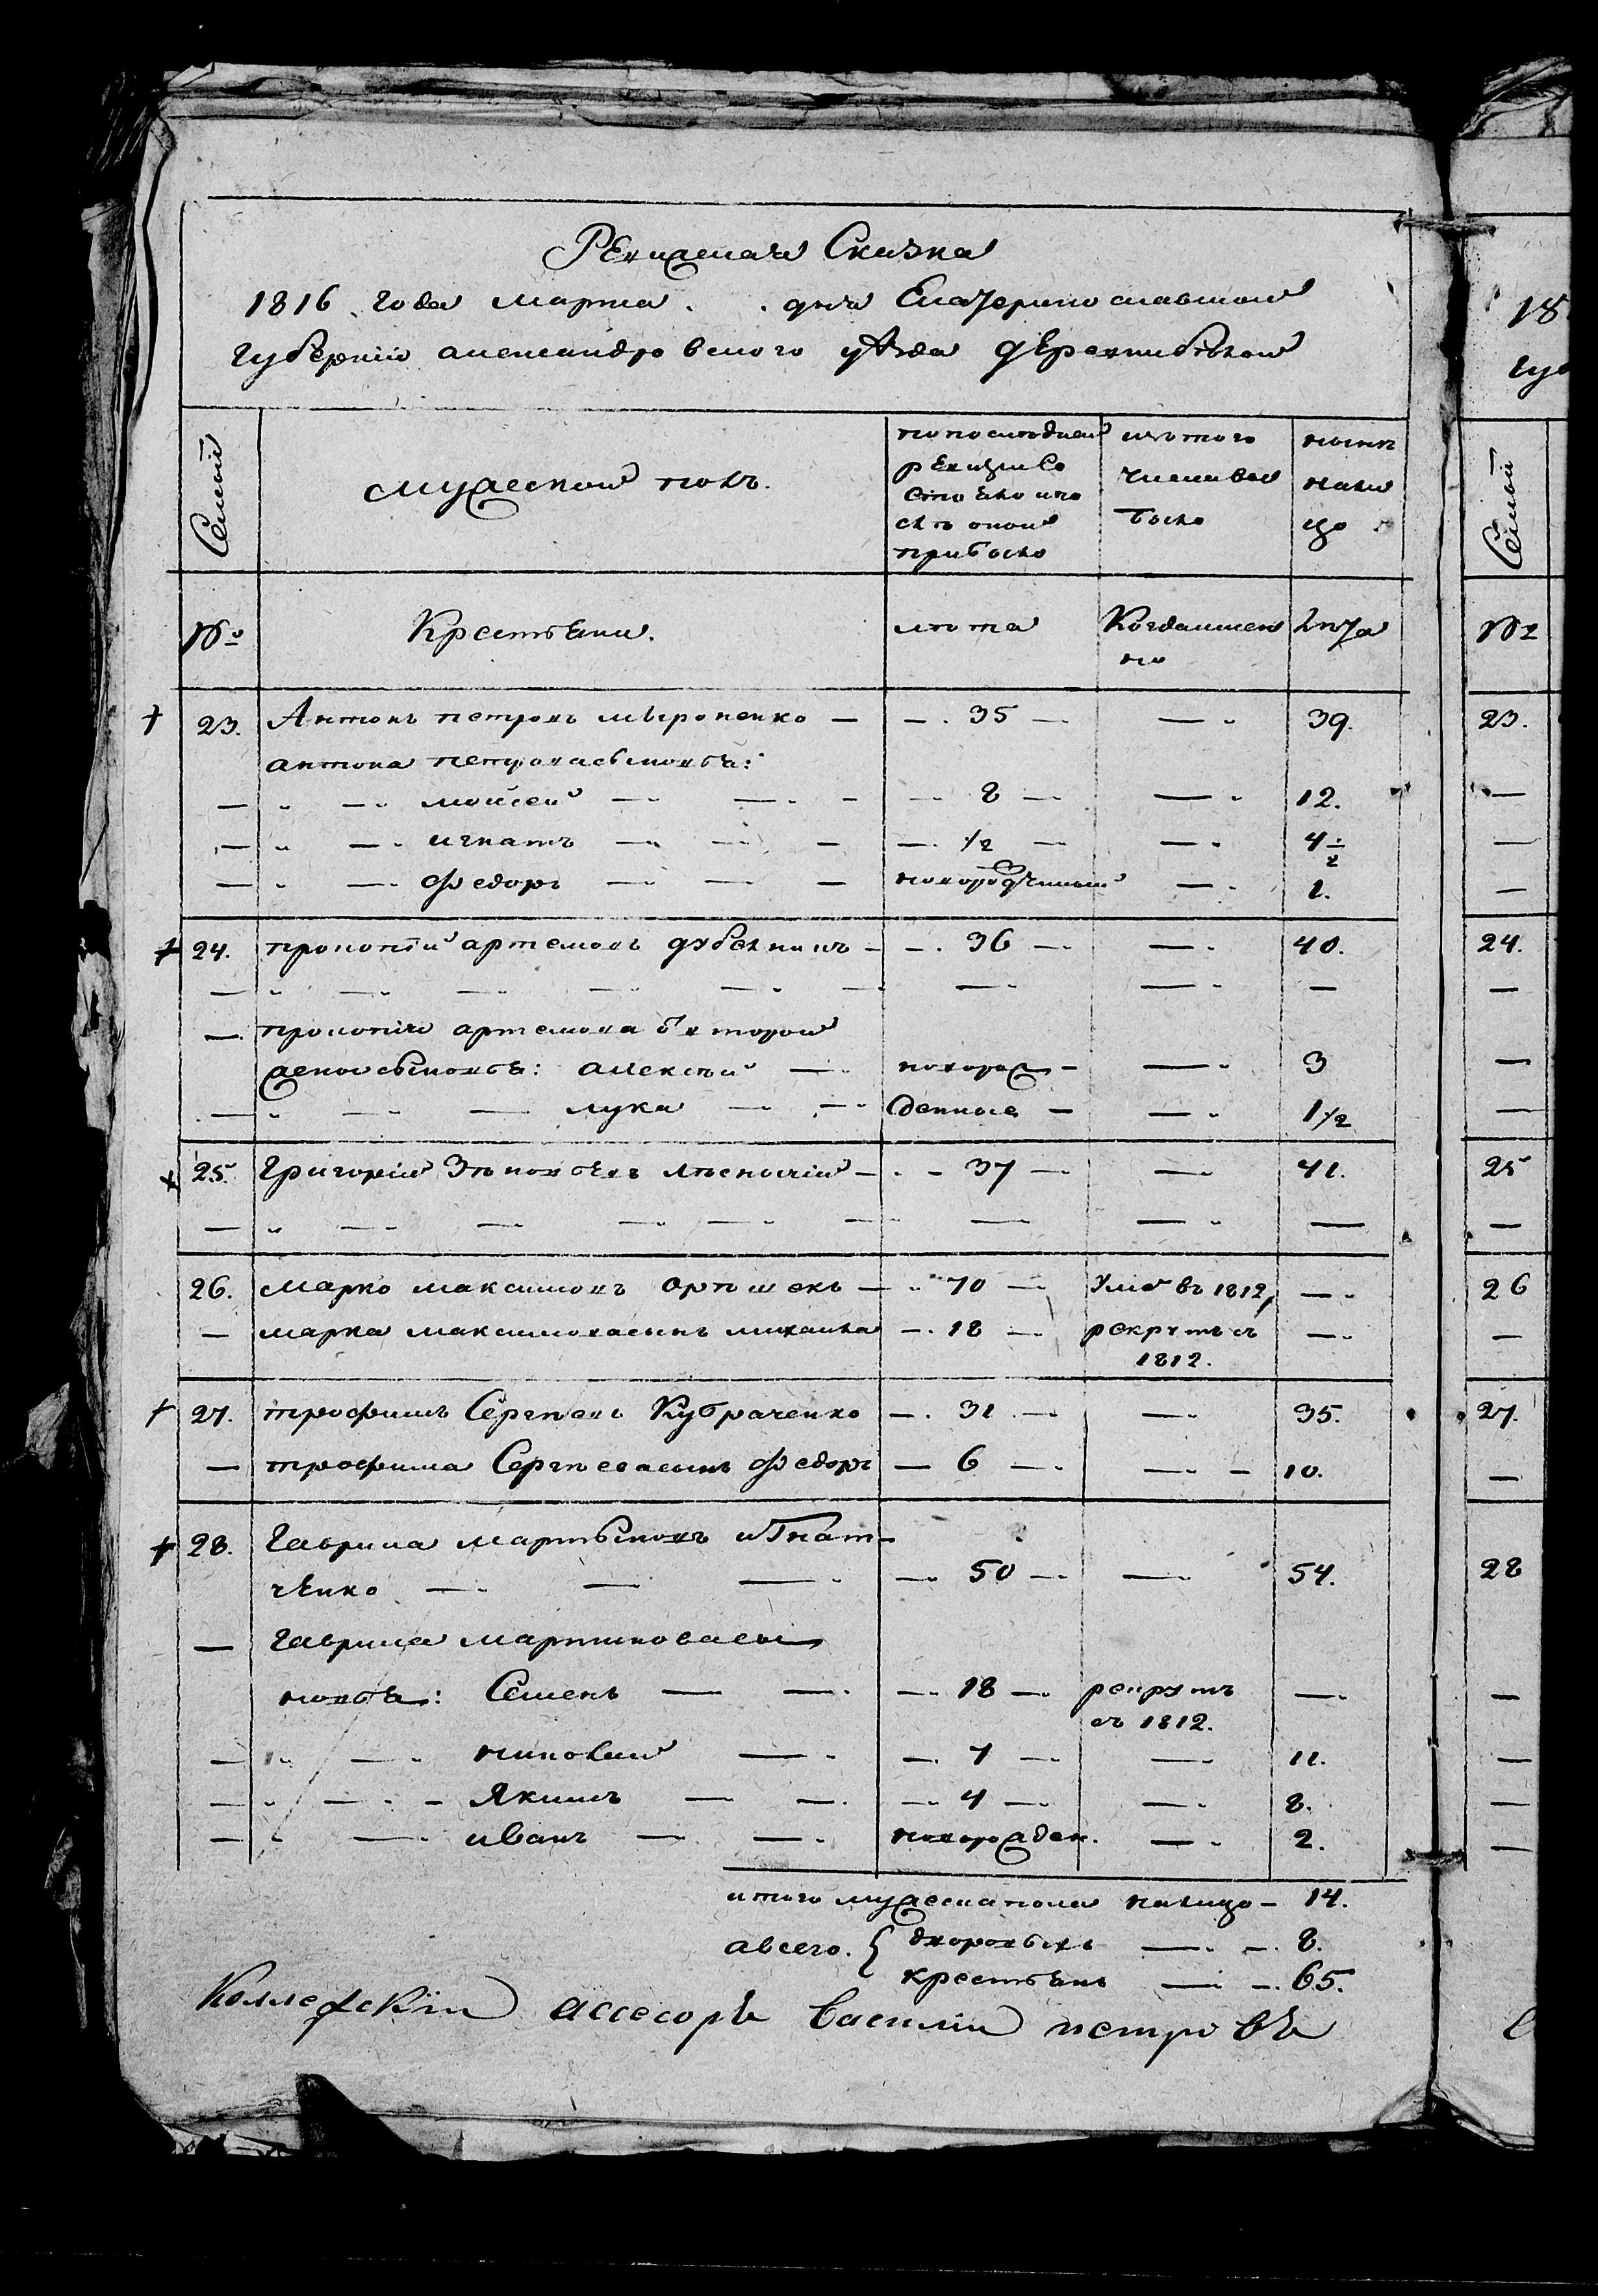 Ревижская Сказка
1816 года марта . . дня Екатеринославской
губернiи александровского уѣзда деревни бѣлой
Семьи
мужеской полъ.
по последней ревизiи Состояло и после оной прибыло
изъ того числа выбыло
нынѣ на лицо
№
Крестьяни.
лѣта
Когда имен но
лѣта
23. Антонъ петровъ мыроненко — — 35 — — 39.
антона петрова сыновья:
— моисей — — 8 — — 12.
— игнатъ — — 1/2 — — 4 1/2
— федоръ — — новорожденный — 1.
24. прокопiй артемовъ дубовикъ — — 36 — — 40.
— прокопiя артемова второй
жены сыновья: алексѣй — новорож — — 3
— лука — — денные — — 1 1/2
25. Григорiй Зѣновьевъ лѣсничiй — — 37 — — 41.
26. марко максимовъ ортшекъ — — 70 — Умре въ 1812, —
— марка максимова сынъ михаила — 18 — рекрутъ съ 1812. —
27. трофимъ Сергѣевъ Кубраченко — 31 — — 35.
— трофима Сергѣева сынъ федоръ — 6 — — 10.
28. гаврила мартыновъ игнат-
ченко — — — — 50 — — 54.
— гаврила мартинова сы
новья: Семенъ — — — 18 — рекрутъ съ 1812. —
— николай — — 7 — — 11.
— Якимъ — — — 4 — — 8.
— иванъ — — новорожден. — 2.
итого мужеска пола налицо — 14.
а всего. { дворовыхъ — — 8.
крестьянъ — — 65.
Коллежскiй ассесоръ Василiй петровъ
18
губ
Семьи
№
23.
24.
25
26
27.
28